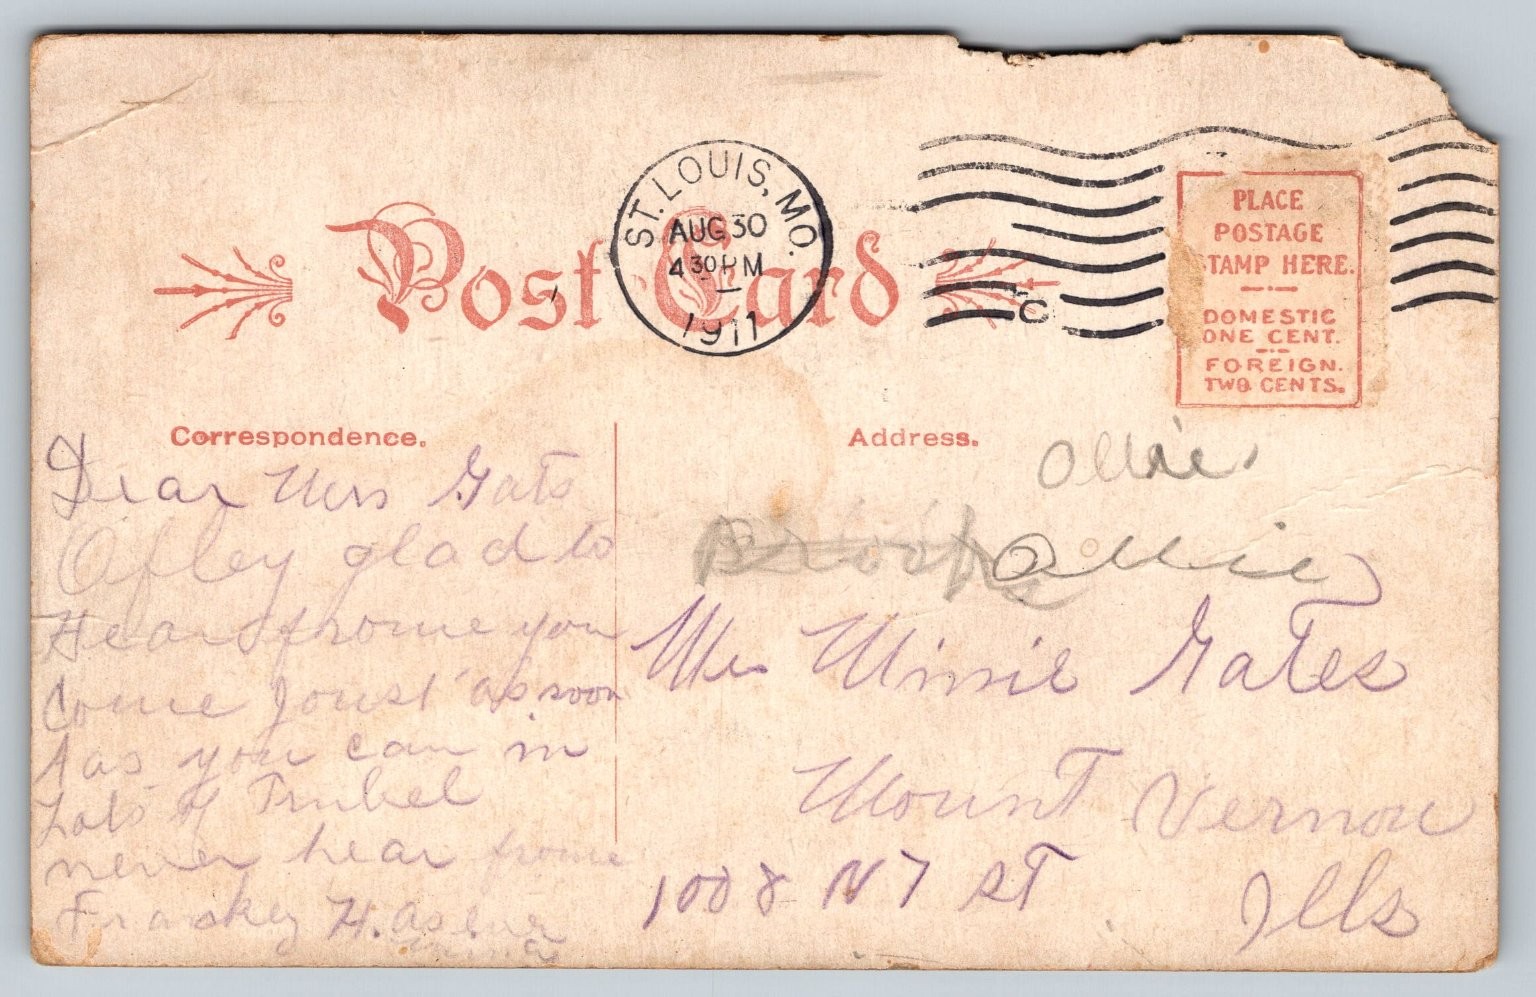 Post Card
ST. LOUIS, MO.
AUG 30
4 30 PM
1911
C
PLACE
POSTAGE
STAMP HERE.
DOMESTIC
ONE CENT.
FOREIGN.
TWO CENTS.
Correspondence.
Address.
Dear Mrs Gats
Ofley glad to
Hear frome you
Come Joust as soon
as you can in
Lots of Trubel
never hear frome
Frankey H.
Ollie
Ollie
Mrs Minnie Gates
Mount Vernon
1008 N 7 ST
Ills